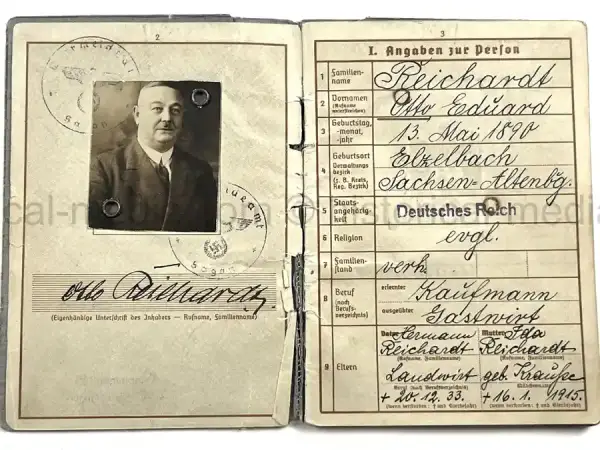 2
Wehrmeldeamt
Sagan
Wehrmeldeamt
Sagan
Otto Reichardt
(Eigenhändige Unterschrift des Inhabers — Rufname, Familienname)
3
I. Angaben zur Person
1 Familien-
name
Reichardt
2 Vornamen
(Rufname
unterstreichen)
Otto Eduard
3 Geburtstag,
-monat,
-jahr
13. Mai 1890
4 Geburtsort
Verwaltungs-
bezirk
(z. B. Kreis,
Reg. Bezirk)
Elzelbach
Sachsen-Altenbg.
5 Staats-
angehörig-
keit
Deutsches Reich
6 Religion
evgl.
7 Familien-
stand
verh.
8 Beruf
(nach
Berufs-
verzeichnis)
erlernter
Kaufmann
ausgeübter
Gastwirt
9 Eltern
Vater Hermann
Reichardt
(Rufname, Familienname)
Landwirt
(Beruf nach Berufsverzeichnis)
+ 20. 12. 33.
(wenn verstorben: † und Sterbejahr)
Mutter Ida
Reichardt
(Rufname, Familienname)
geb. Krauße
(Mädchenname)
+ 16. 1. 1915.
(wenn verstorben: † und Sterbejahr)